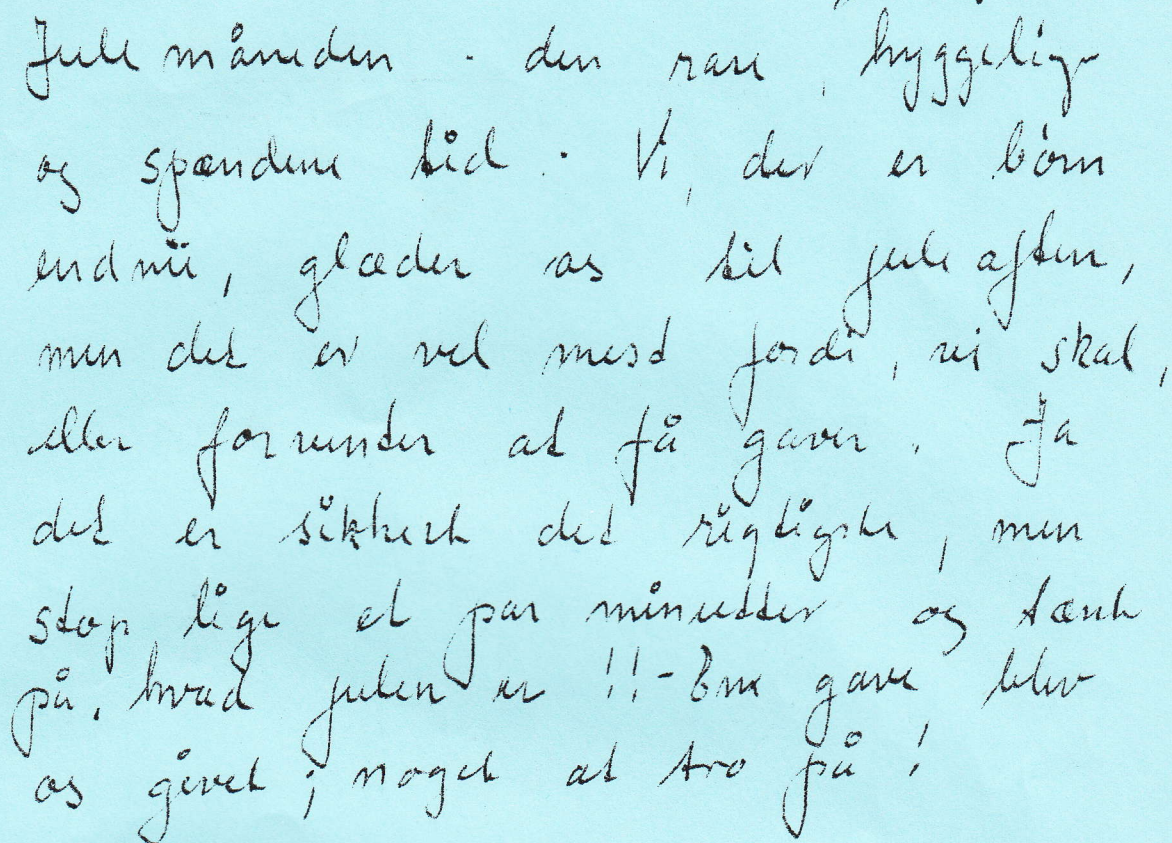 Julemåneden - den rare, hyggelige
og spændene tid. Vi, der er børn
endnu, glæder os til juleaften,
men det er vel mest fordi, vi skal,
eller forventer at få gaver. Ja
det er sikkert det rigtigste, men
stop lige et par minutter og tænk
på, hvad julen er !! - Ene gave blev
os givet; noget at tro på!